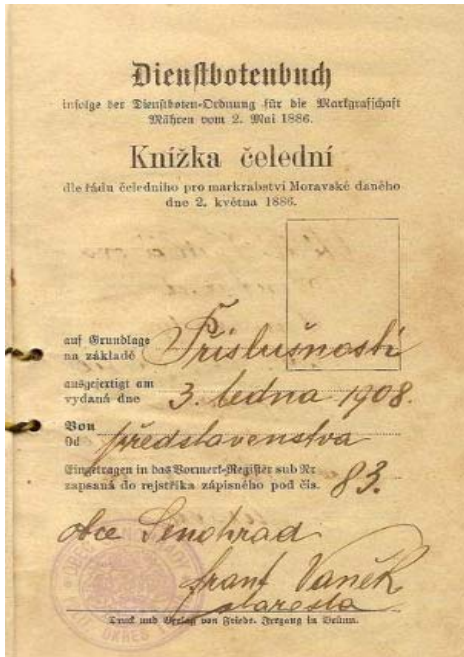 Dienstbotenbuch
infolge der Dienstboten-Ordnung für die Markgrafschaft
Mähren vom 2. Mai 1886.
Knížka čelední
dle řádu čeledního pro markrabství Moravské daného
dne 2. května 1886.
auf Grundlage
na základě Příslušnosti
ausgefertigt am
vydaná dne 3. ledna 1908.
Von
Od představenstva
Eingetragen in das Vormerk-Register sub Nr
zapsaná do rejstříka zápisného pod čís. 83.
obce Senohrad
Frant Vaněk
starosta
Druck und Verlag von Friedr. Irrgang in Brünn.